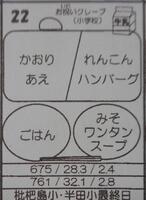 22
お祝いクレープ
(小学校)
牛乳
かおり
あえ
れんこん
ハンバーグ
ごはん
みそ
ワンタン
スープ
675 / 28.3 / 2.4
761 / 32.1 / 2.8
枇杷島小・半田小最終日